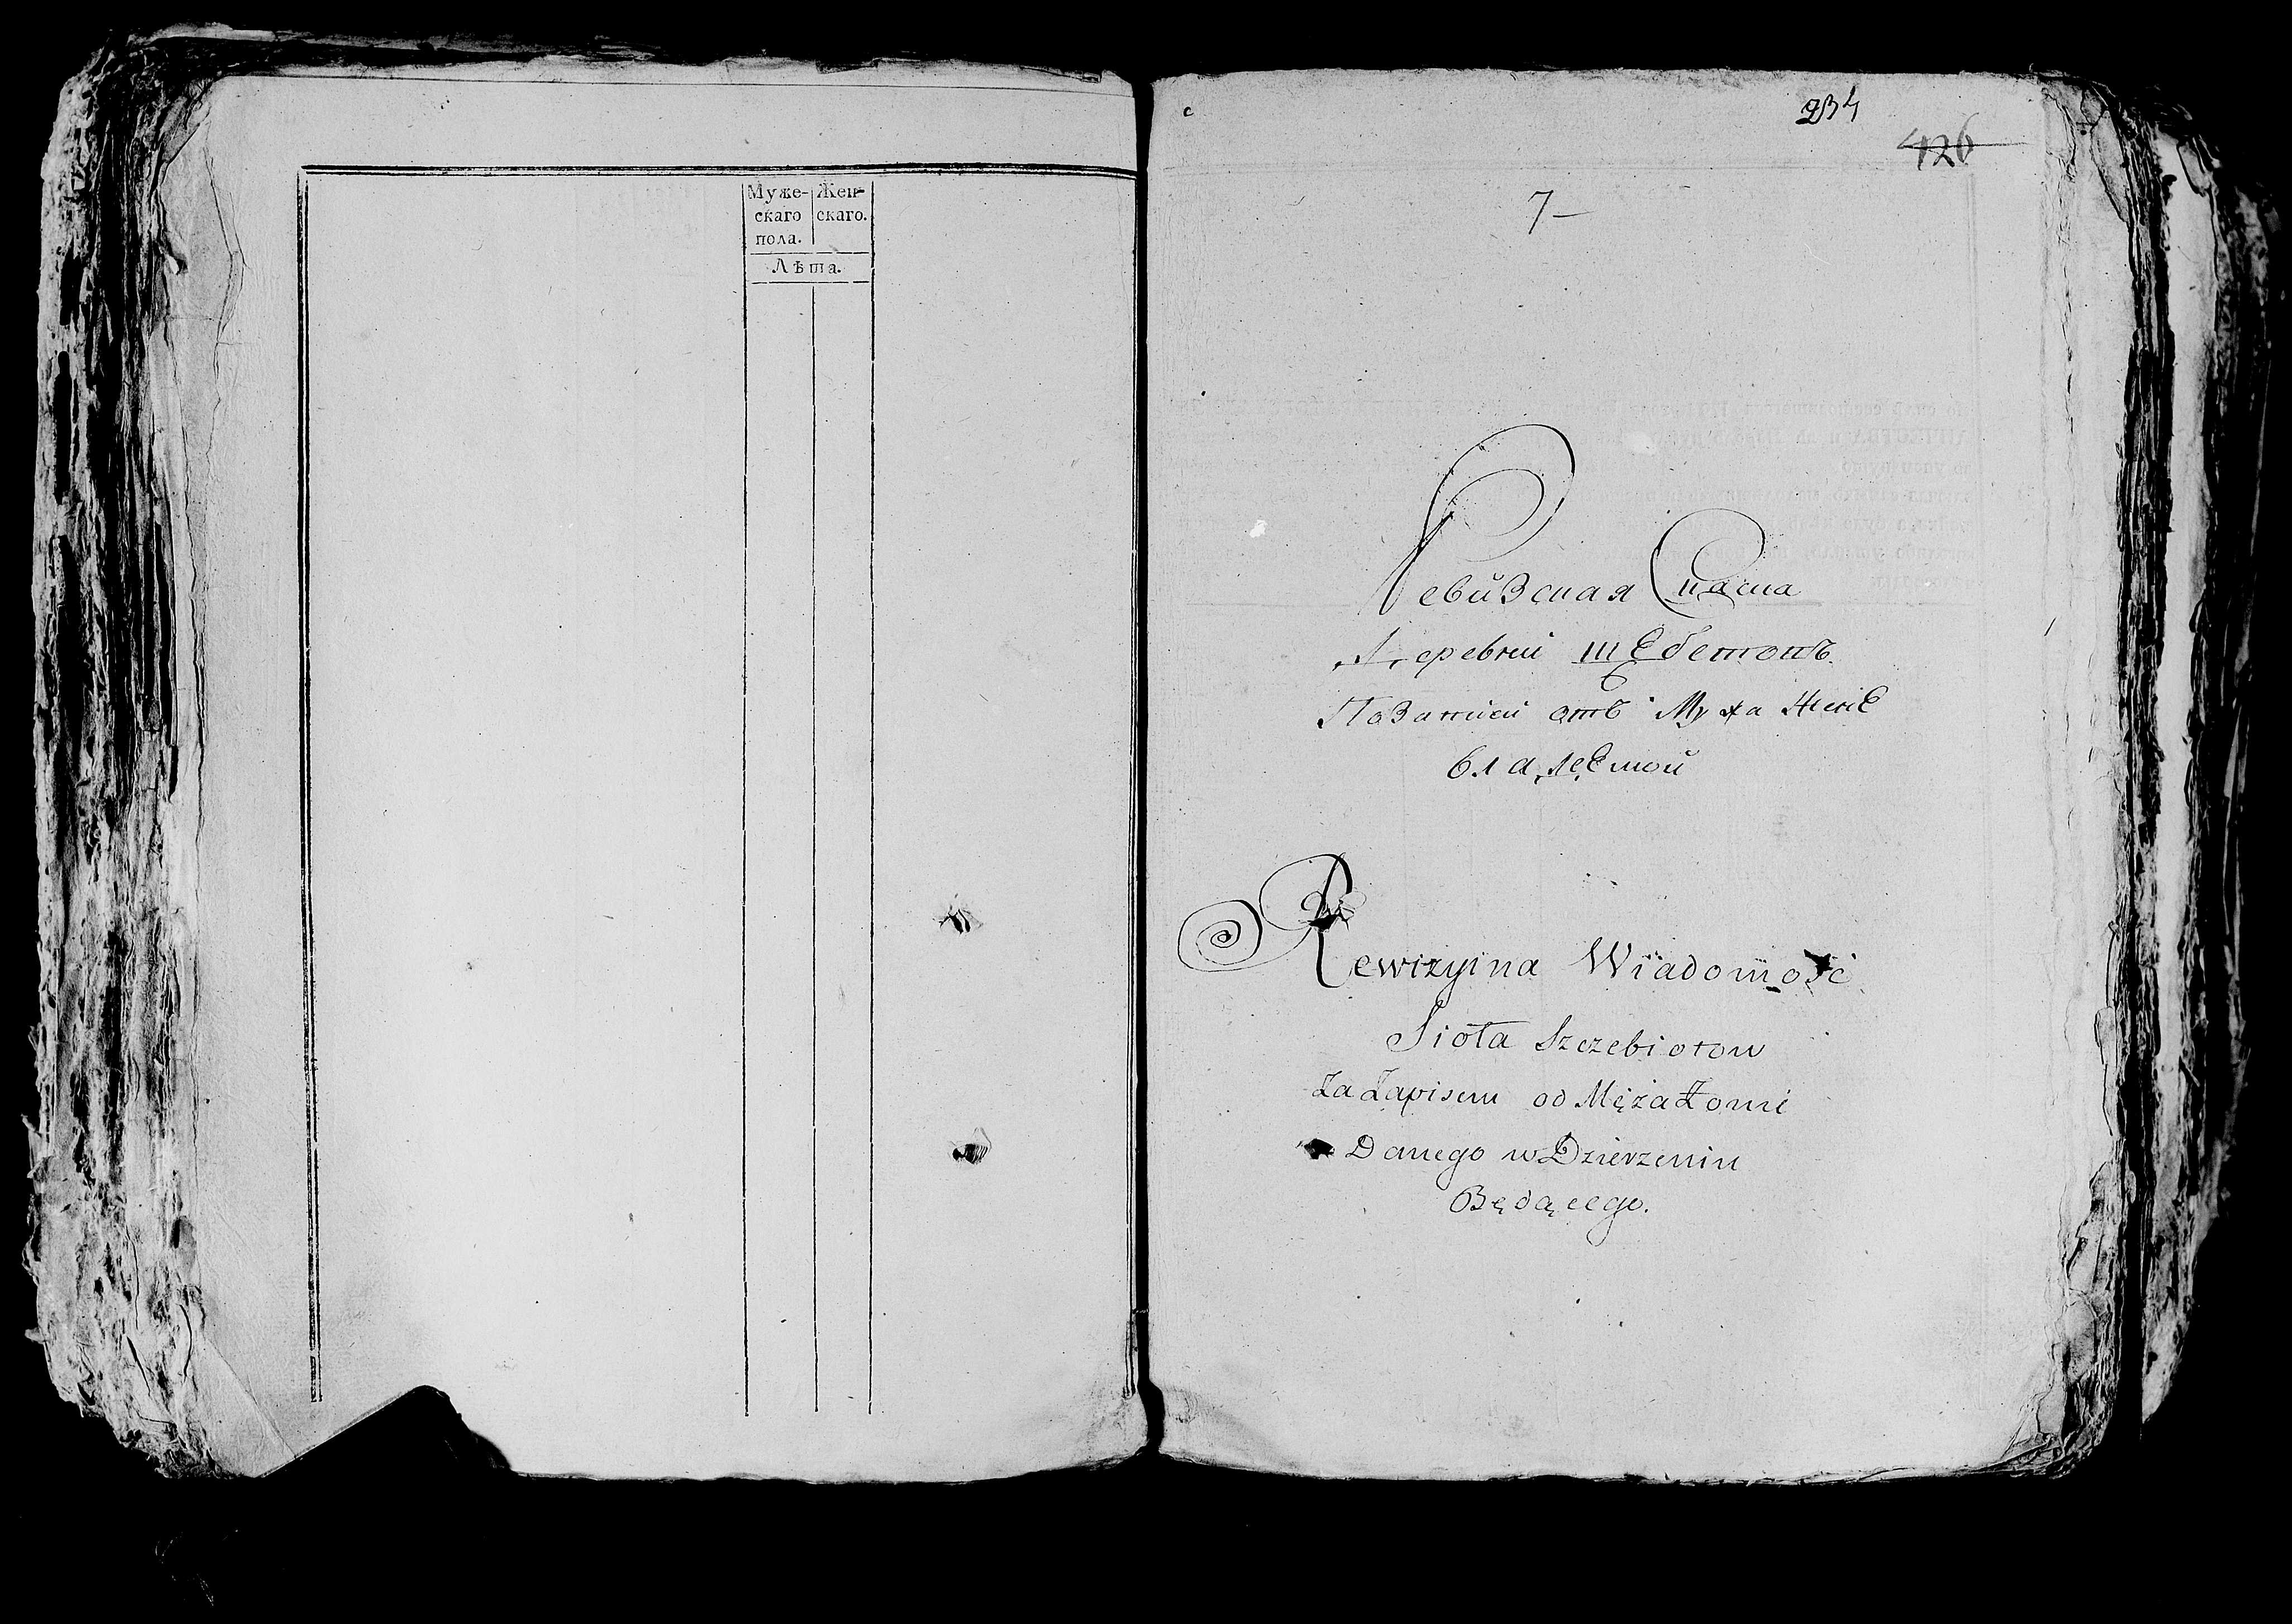 Муже- Жен-
скаго скаго.
пола.
Лѣта.
234
426
7
Ревизская Сказка
Деревни Щебетовъ
По Записи отъ Мужа Жене
владеемой
Rewizyina Wiadomość
Sioła Szczebiotow
Za Zapisem od Męża Żonie
Danego w Dzierżeniu
Będącego.